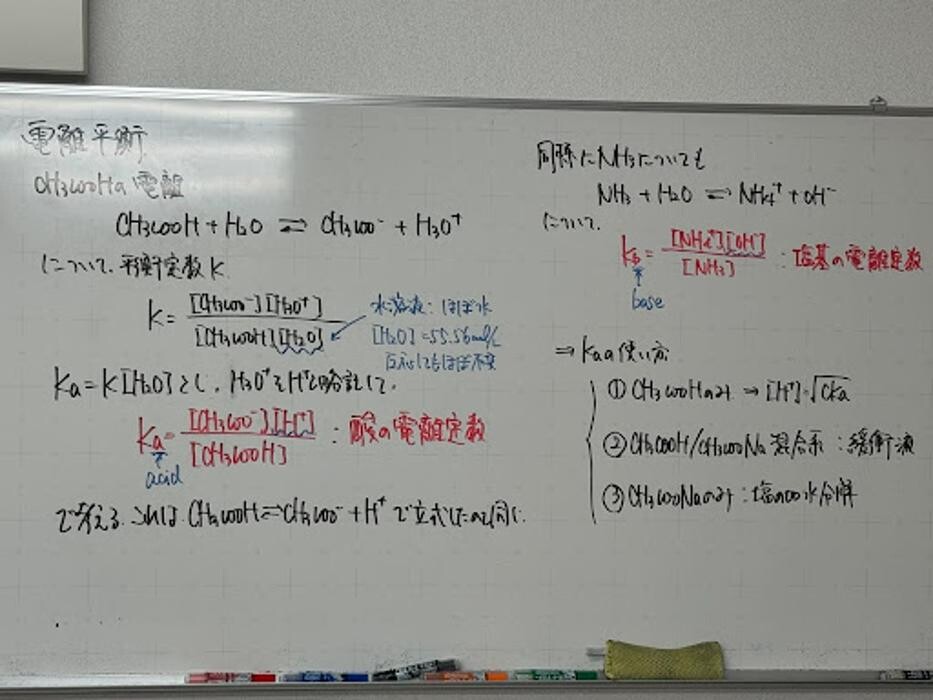 電離平衡
CH3COOHの電離
CH3COOH + H2O ⇄ CH3COO⁻ + H3O⁺
について、平衡定数K
K = [CH3COO⁻][H3O⁺] / [CH3COOH][H2O]
水溶液：ほぼ水
[H2O] = 55.56mol/L
反応してもほぼ不変
Ka = K[H2O]とし、H3O⁺をH⁺と略記して、
Ka = [CH3COO⁻][H⁺] / [CH3COOH] : 酸の電離定数
acid
で考える。これは CH3COOH ⇄ CH3COO⁻ + H⁺ で立式したのと同じ。
同様にNH3についても
NH3 + H2O ⇄ NH4⁺ + OH⁻
について、
Kb = [NH4⁺][OH⁻] / [NH3] : 塩基の電離定数
base
⇒ Kaの使い方
① CH3COOHのみ → [H⁺]=√CKa
② CH3COOH/CH3COONa 混合系：緩衝液
③ CH3COONaのみ：塩の加水分解